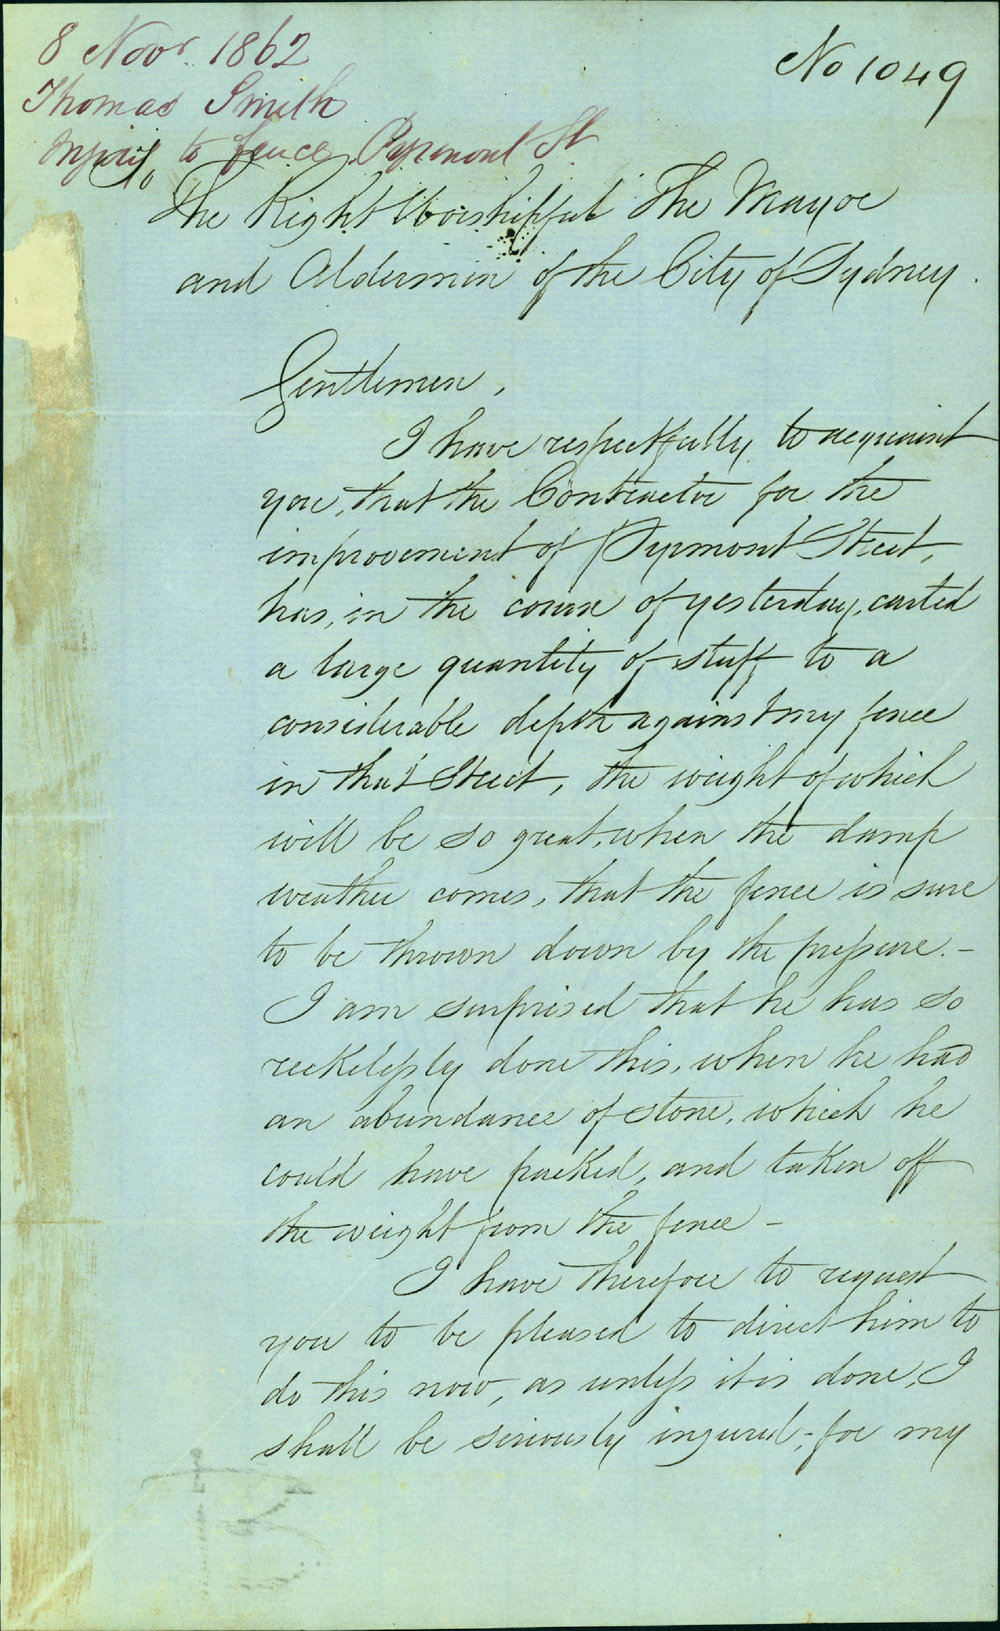 8 Novr. 1862
No 1049
Thomas Smith
Injury to fence Pyrmont St
To
The Right Worshipful The Mayor
and Aldermen of the City of Sydney.
Gentlemen,
I have respectfully to acquaint
you, that the Contractor for the
improvement of Pyrmont Street,
has, in the course of yesterday, carted
a large quantity of stuff to a
considerable depth against my fence
in that Street, the weight of which
will be so great, when the damp
weather comes, that the fence is sure
to be thrown down by the pressure. -
I am surprised that he has so
recklessly done this, when he had
an abundance of stone, which he
could have packed, and taken off
the weight from the fence -
I have therefore to request
you to be pleased to direct him to
do this now, as unless it is done, I
shall be seriously injured; for my